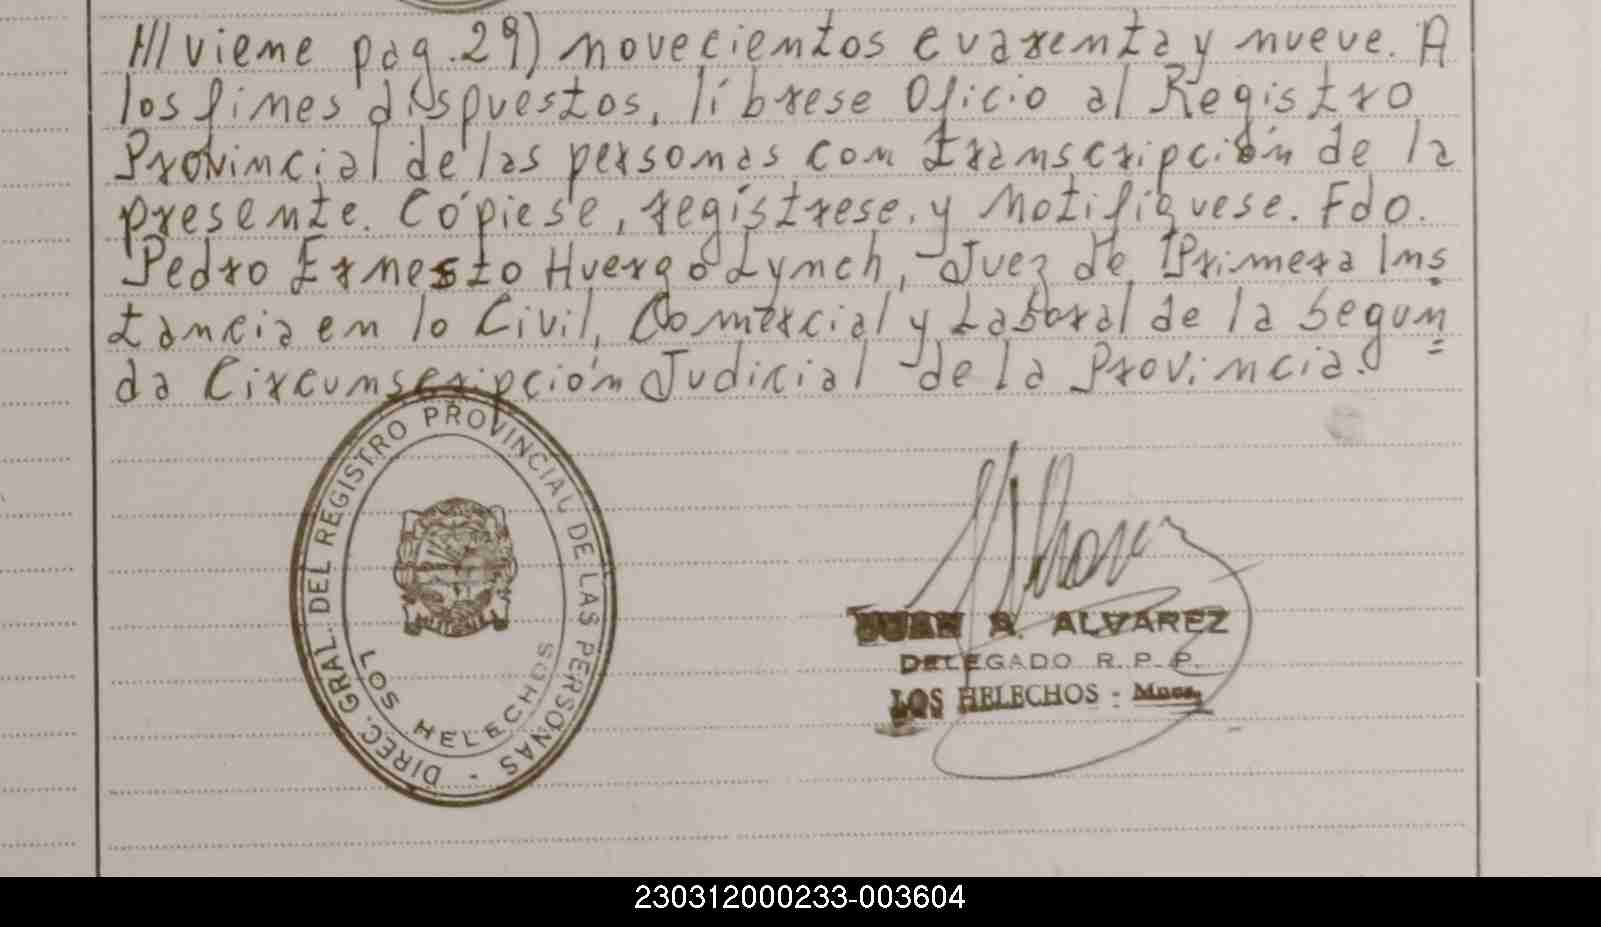 ///viene pag. 29) novecientos cuarenta y nueve. A
los fines dispuestos, líbrese Oficio al Registro
Provincial de las personas con transcripción de la
presente. Cópiese, regístrese, y notifíquese. Fdo.
Pedro Ernesto Huergo Lynch, Juez de Primera Ins
tancia en lo Civil, Comercial y Laboral de la Segun
da Circunscripción Judicial de la Provincia.
DIREC. GRAL. DEL REGISTRO PROVINCIAL DE LAS PERSONAS -
LOS HELECHOS
JUAN A. ALVAREZ
DELEGADO R. P. P.
LOS HELECHOS - Mnes.
230312000233-003604